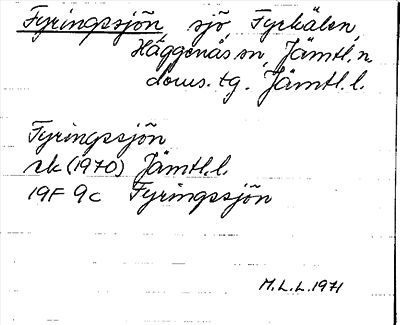 Fyringssjön, sjö, Fyrkälen,
Häggenås sn, Jämtl. n.
doms. tg. Jämtl. l.
Fyringssjön
ek (1970) Jämtl. l.
19F 9c Fyringssjön
M.L.L. 1971